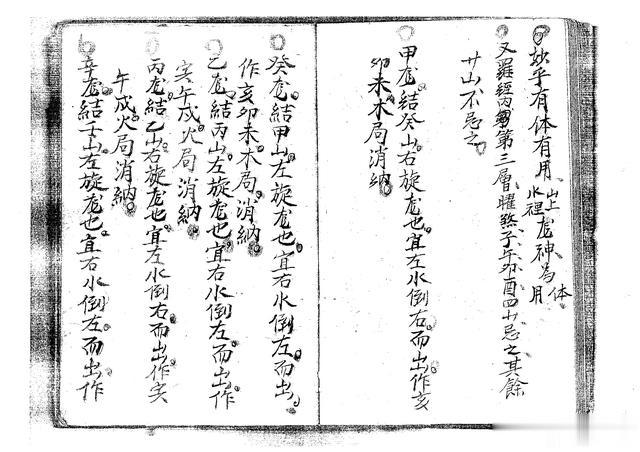 妙乎有体有用 山上水裡 龙神為 体用
又羅經內第三層曜煞子午卯酉四山忌之其餘
廿山不忌之
甲龙結癸山右旋龙也宜左水倒右而出作亥
卯未木局消納
癸龙結甲山左旋龙也宜右水倒左而出
作亥卯未木局消納
乙龙結丙山左旋龙也宜右水倒左而出作
寅午戌火局消納
丙龙結乙山右旋龙也宜左水倒右而出作寅
午戌火局消納
辛龙結壬山左旋龙也宜右水倒左而出作